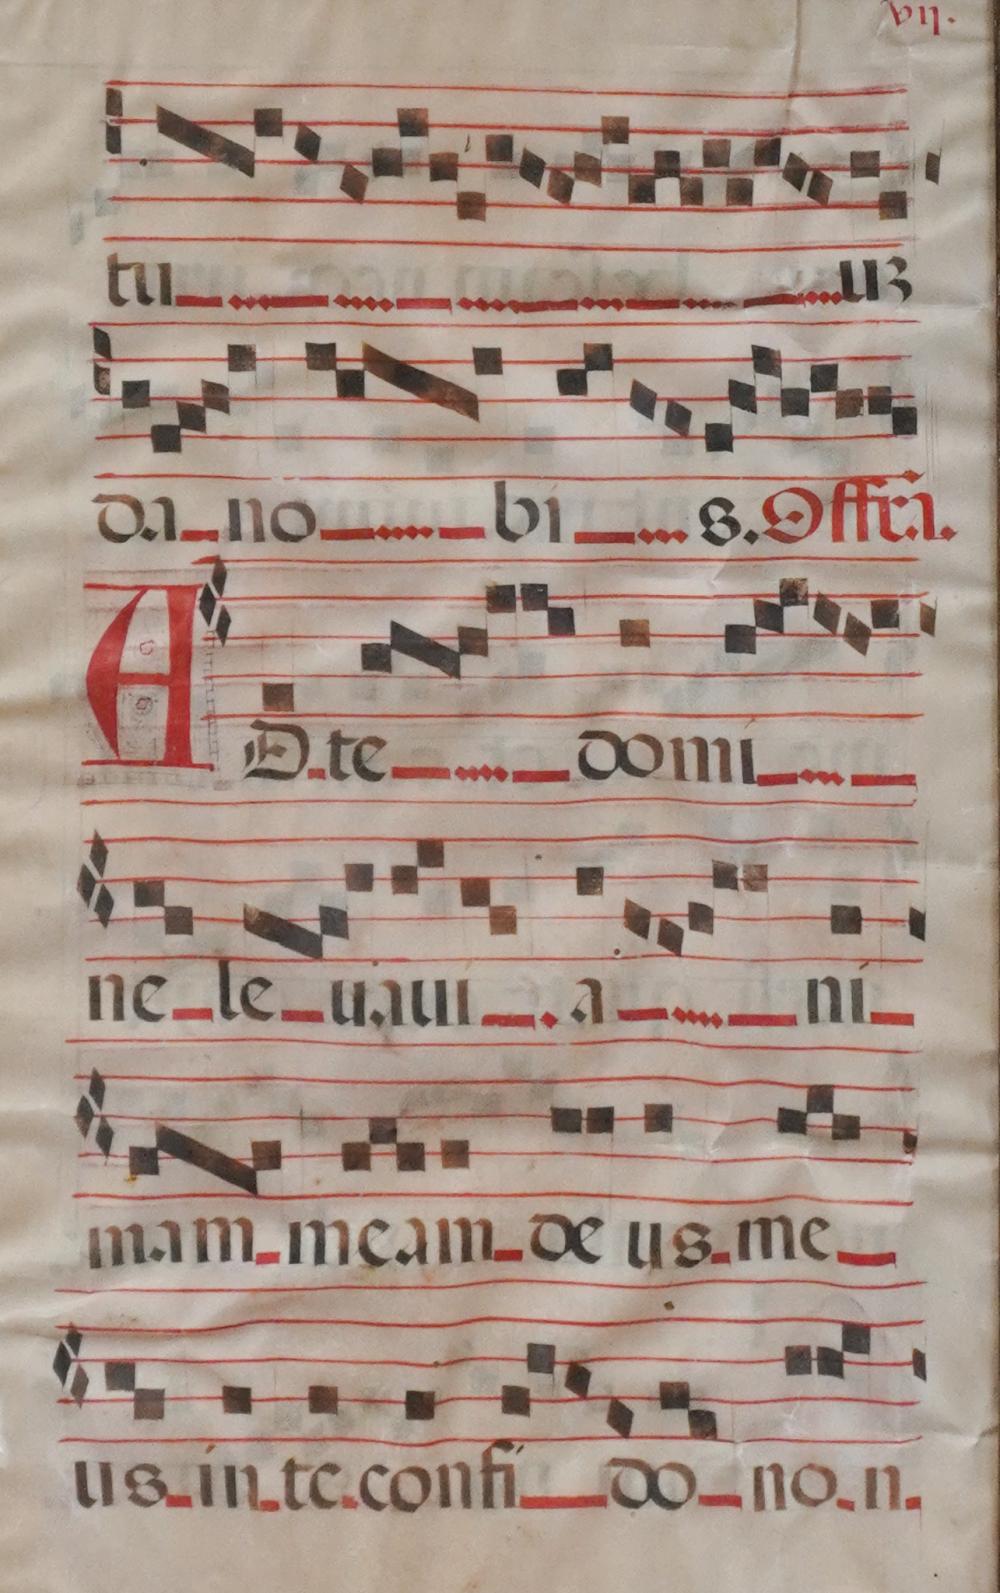 vij.
tu uz
da no bi s. Offra.
AD te domi
ne le uaui a ni
mam meam deus me
us in te confi do non